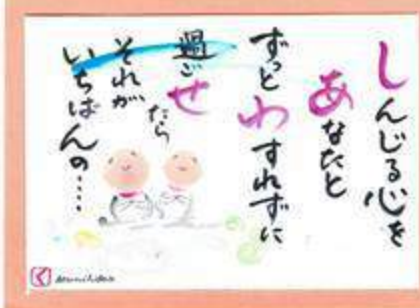 しんじる心を
あなたと
ずっとわすれずに
過ごせたら
それが
いちばんの‥‥
く